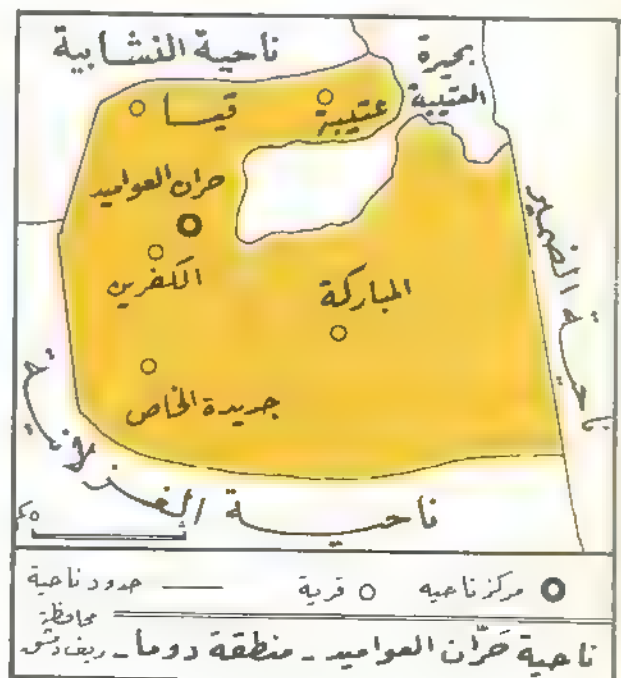 ناحية النشابية
بحيرة
العتيبة
قيسا
عتيبة
حران العواميد
الكفرين
المباركة
جديدة الخاص
ناحية الضمير
ناحية الغزلانية
٥كم
مركز ناحيه
قرية
حدود ناحية
ناحية حَرَّان العواميد - منطقة دوما - محافظة ريف دمشق